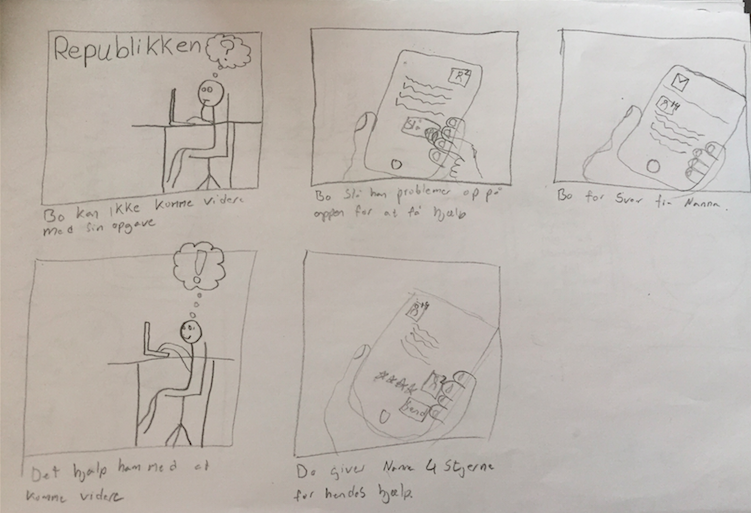 Republikken
?
Bo kan ikke komme videre
med sin opgave
R2
Slå
Bo Slå han problemer op på
appen for at få hjælp
R+4
Bo for Svar fra Nanna.
!
Det hjælp ham med at
komme videre
R+4
R2
Send
Bo giver Nanna 4 Stjerne
for hendes hjælp.